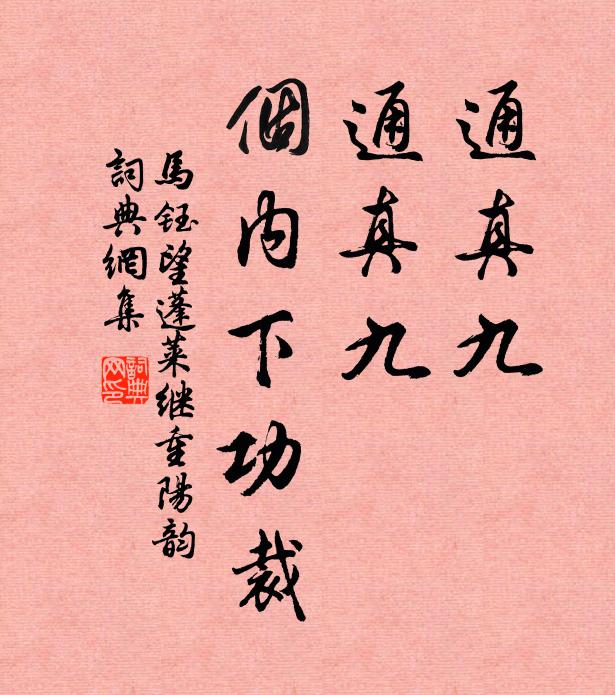 通真九
通真九
個内下功裁
馬鈺望蓬莱继重陽韵
詞典網集
詞典网印